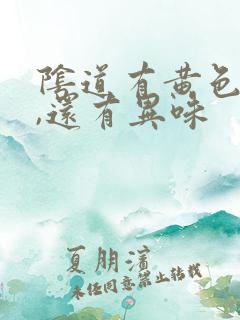 陰道有黃色
,還有異味
夏朋濱
未任同意禁止转载